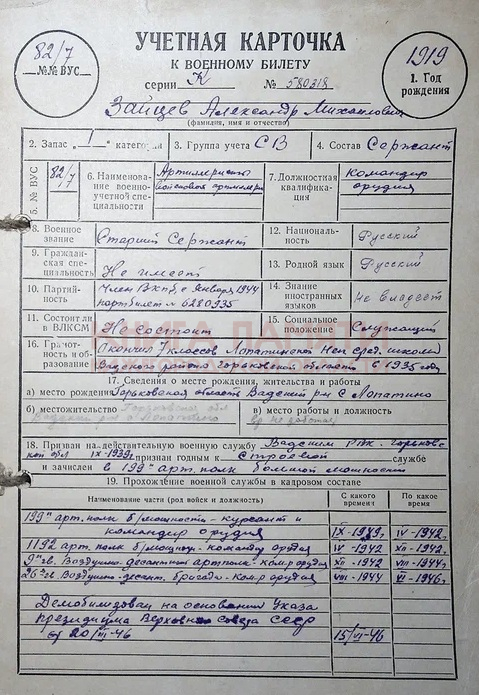 82/7
№№ ВУС
УЧЕТНАЯ КАРТОЧКА
К ВОЕННОМУ БИЛЕТУ
серии К № 580318
1919
1. Год
рождения
Зайцев Александр Михайлович
(фамилия, имя и отчество)
2. Запас I категории
3. Группа учета СВ
4. Состав Сержант
5. № ВУС 82/7
6. Наименование военно-учетной специальности Артиллеристы войсковой артиллерии
7. Должностная квалификация командир орудия
8. Военное звание Старший Сержант
12. Национальность Русский
9. Гражданская специальность Не имеет
13. Родной язык Русский
10. Партийность Член ВКП/б с Января 1944 партбилет № 6280935
14. Знание иностранных языков Не владеет
11. Состоит ли в ВЛКСМ Не состоит
15. Социальное положение Служащий
16. Грамотность и образование Окончил 7 классов Лопатинской Неп сред. школы
Вадского района Горьковской области в 1935 году
17. Сведения о месте рождения, жительства и работы
а) место рождения Горьковская область Вадский р-н с Лопатино
б) местожительство Горьковская обл
Вадский р-н с Лопатино
в) место работы и должность
не работает
18. Призван на действительную военную службу Вадским РВК. Горьковс
кой обл IX-1939г. призван годным к Строевой службе
и зачислен в 199 арт. полк большой мощности
19. Прохождение военной службы в кадровом составе
Наименование части (род войск и должность) С какого времени По какое время
199 арт. полк б/мощности - курсант и
командир орудия IX-1939г. IV-1942г.
1192 арт. полк б/мощнос. - командир орудия IV-1942 XII-1942г.
9 гв. Воздушно-десантный артполк - ком. орудия XII-1942 VIII-1944г.
26 гв. Воздушно-десант. бригада - ком. орудия VIII-1944 VI-1946г.
Демобилизован на основании Указа
президиума Верховного Совета СССР
от 20/III-46 15/VI-46